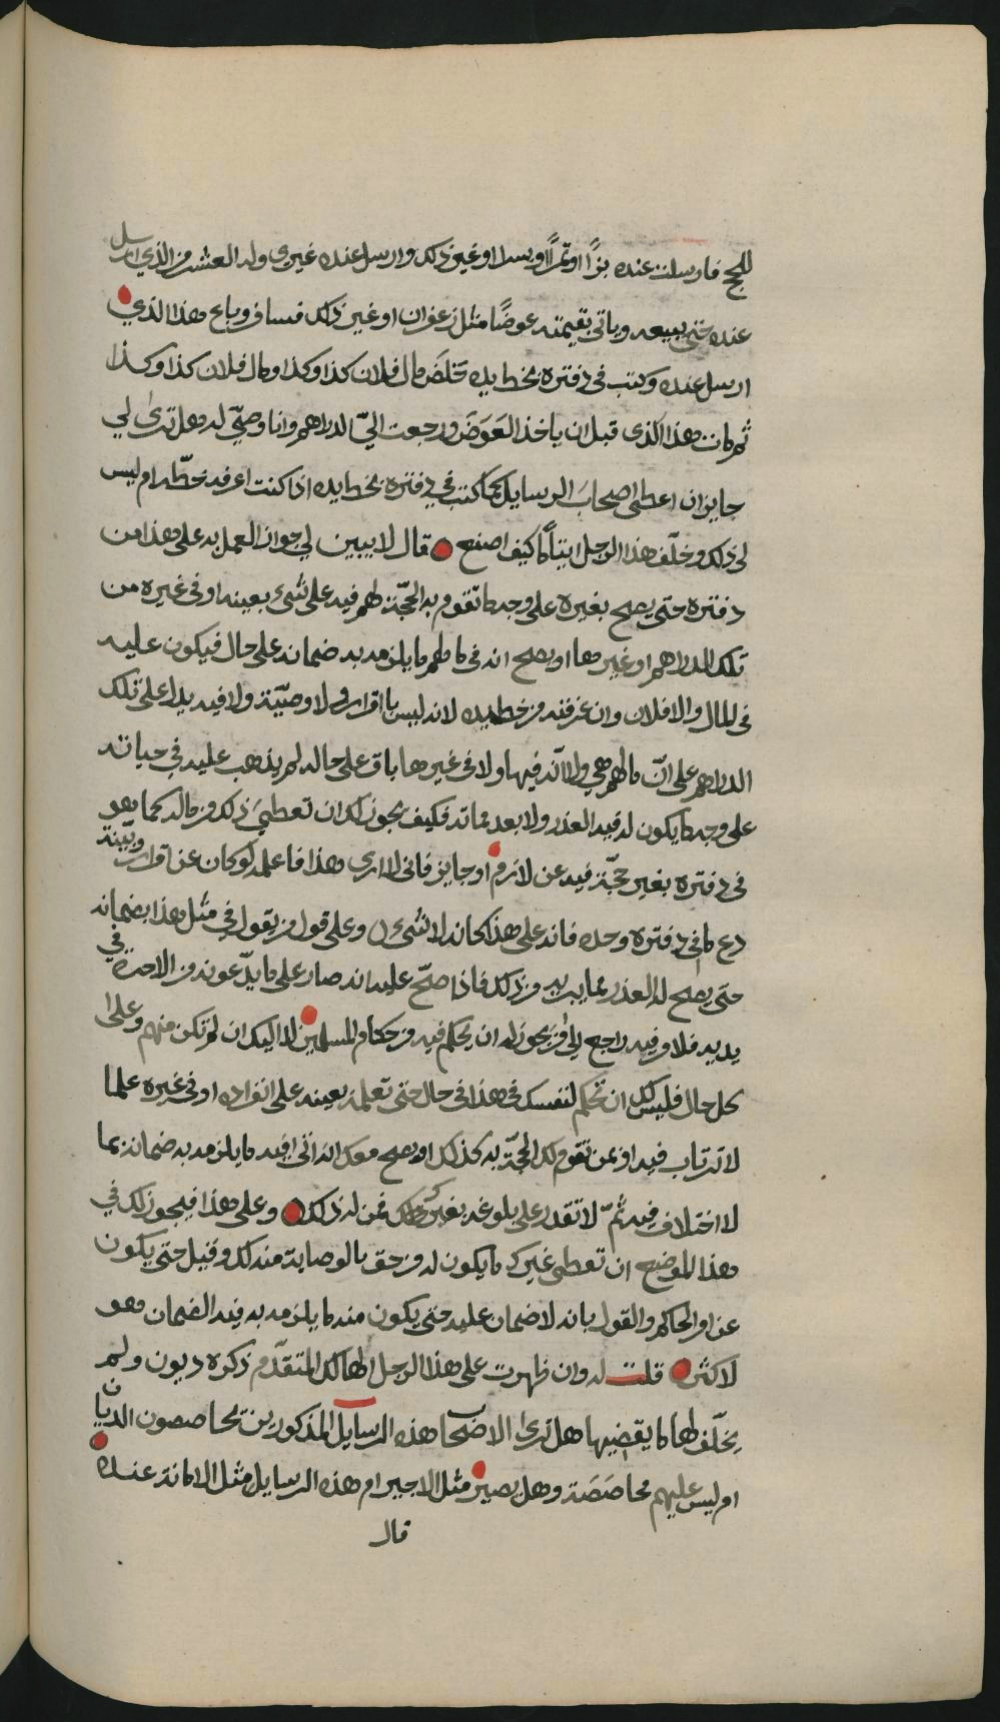 للحج فارسلت عنده بزًّا اوتمرًا وبسرا اوغير ذلك وارسل عنده غيري وله العشر من الذي ارسل
عنده حتى يبيعه وياتي بقيمته عوضًا مثل زعفران اوغير ذلك فسافر وباع هذا الذي
ارسل عنده وكتب في دفتره بخط يده تخلَصَ مال فلان كذا وكذا ومال فلان كذا وكذا
ثم مات هذا الذي قبل ان ياخذ العَوَضَ ورجعت اليّ الدراهم وانا وصيّ له وهل ترى لي
جايزا ان اعطي اصحابَ الرسايل كما كتب في دفتره بخط يده اذا كنت اعرف خطّه ام ليس
لي ذلك وخلّف هذا الرجل ايتاًما كيف اصنع قال لا يبين لي جواز العمل به على هذا من
دفتره حتى يصح بغيره على وجه ما تقوم به الحجّة لهم فيه على شيء بعينه او في غيره من
تلك الدراهم او غيرها او يصح انه في مالهم ما يلزمه به ضمانه على حال فيكون عليه
في المال والا فلا وان عرفته من خط يده لانه ليس باقرار ولا وصيّة ولا فيه يدل على تلك
الدراهم على انّ مالهم هي ولا انّه فيها ولا في غيرها باق على حاله لم يذهب عليه في حياته
على وجه ما يكون له فيه العذر ولا بعد مماته فكيف يجوز لك ان تعطي ذلك من ماله كما هو
في دفتره بغير حجّة فيه عن لازم او جايز فاني لا ارى هذا فاعلمه لو كان عن اقرار وبيّنة
دع ما في دفتره وحده فانه على هذا كانه لا شيء وعلى قول من يقول في مثل هذا بضمانه
حتى يصح له العذر بما يبريه من ذلك فاذا صحّ عليه انه صار على ما يدّعونه من الاجرة في
يديه فلا وفيه راجع الى من يجوز له ان يحكم فيه من حكام المسلمين لا اليك ان لم تكن منهم وعلى
كل حال فليس لك ان تحكم لنفسك في هذا في حال حتى تعلمه بعينه على انفراده او في غيره علما
لا ترتاب فيه او عمن تقوم لك الحجّة به كذلك او يصح معك انه اتى فيه ما يلزمه به ضمانه بما
لا اختلاف فيه ثمّ لا تقدر على بلوغه بغيرك ممن له ذلك وعلى هذا فيجوز لك في
هذا الموضع ان تعطي غيرك ما يكون له من حق بالوصاية منه لك وقيل حتى يكون
عن امر الحاكم والقول بانه لا ضمان عليه حتى يكون منه ما يلزمه به فيه الضمان هو
الاكثر قلت له وان ظهرت على هذا الرجل الهالك المتقدّم ذكره ديون ولم
يخلّف لها ما يقضيها هل ترى الاصحاب هذه الرسايل المذكورين يحاصصون الديان
ام ليس عليهم محاصَصَة وهل يصير مثل الاجير ام هذه الرسايل مثل الامانة عنده
قال